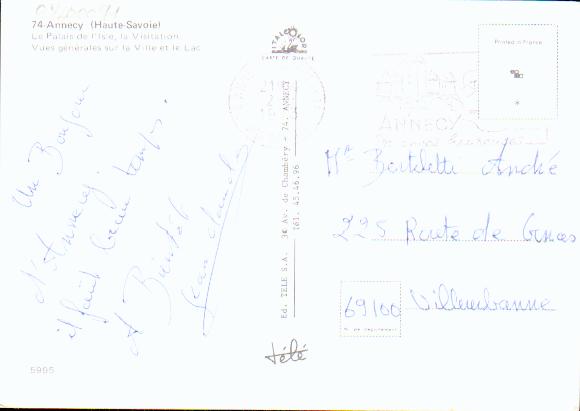 74-Annecy (Haute-Savoie)
Le Palais de l'Isle, la Visitation
Vues générales sur la Ville et le Lac
Un Bonjour
d'Annecy.
il fait beau temps.
A Bientôt
Jean Claude
5995
ITALCOLOR
CARTE DE QUALITÉ
Ed. TELE S.A. 3 Av. de Chambéry - 74. ANNECY
tél. 45.46.96
télé
Printed in France
ANNECY
Mr Bertolette André
225 Route de
69100 Villeurbanne
N. de département